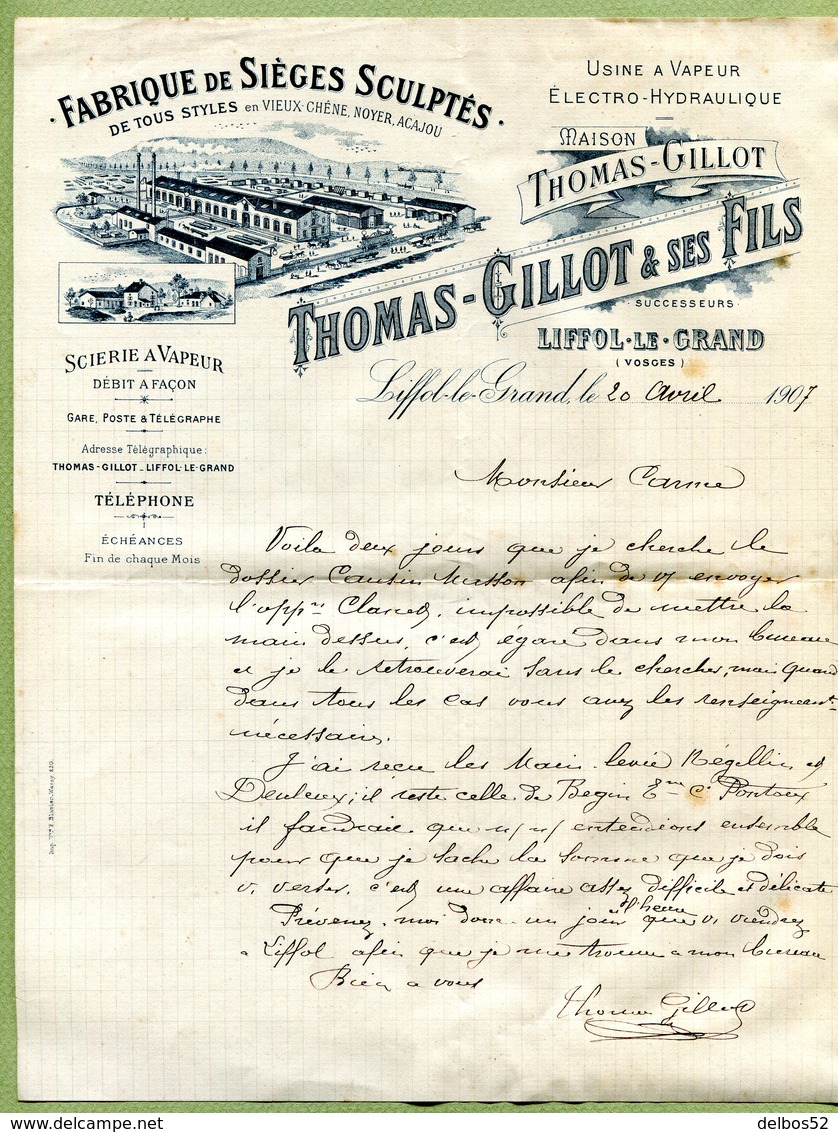 FABRIQUE DE SIÈGES SCULPTÉS
DE TOUS STYLES en VIEUX-CHÊNE, NOYER, ACAJOU
USINE A VAPEUR
ÉLECTRO-HYDRAULIQUE
MAISON
THOMAS-GILLOT
THOMAS-GILLOT & SES FILS
SUCCESSEURS
LIFFOL-LE-GRAND
(VOSGES)
SCIERIE A VAPEUR
DÉBIT A FAÇON
GARE, POSTE & TÉLÉGRAPHE
Adresse Télégraphique:
THOMAS-GILLOT_LIFFOL-LE-GRAND
TÉLÉPHONE
ÉCHÉANCES
Fin de chaque Mois
Liffol-le-Grand, le 20 Avril 1907
Monsieur Carme
Voila deux jours que je cherche le
dossier Causin Masson afin de v/ envoyer
l'oppon Claudet, impossible de mettre la
main dessus, c'est égaré dans mon bureau
et je le retrouverai sans le chercher, mais quand
dans tous les cas vous avez les renseignemts
nécessaires.
J'ai reçu les Main levée Régillin et
il reste celle de Begin Contoux
il faudrait que n/ n/ entendions ensemble
pour que je sache la somme que je dois
v. verser, c'est une affaire assez difficile et délicate
Prévenez-moi donc un jour et heure que v. viendrez
a Liffol afin que je me trouve a mon bureau
Bien a vous
Thomas Gillot
delbos52